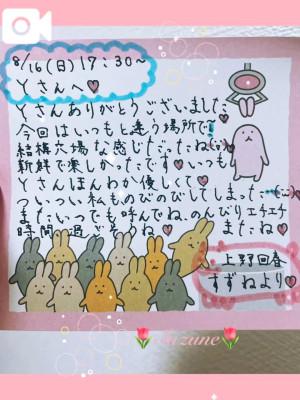 8/16(日)17:30~
Yさんへ♥
Yさんありがとうございました
今回はいつもと違う場所で!
結構穴場な感じだったね
新鮮で楽しかったです♥いつも
Yさんほんわか優しくて♥
ついつい私ものびのびしてしまった
またいつでも呼んでね、のんびりエチエチ
時間過ごそうね♥ またね♥
上野回春
すずねより♥
Suzune